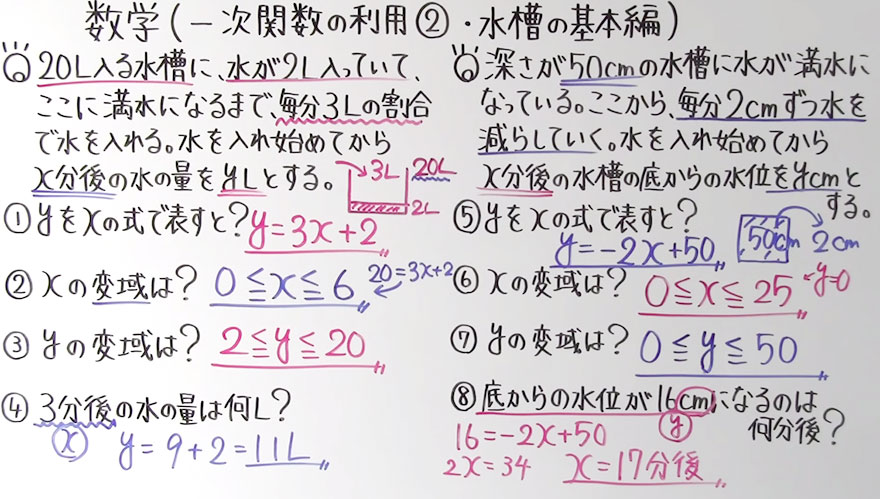 数学(一次関数の利用②・水槽の基本編)
20L入る水槽に、水が2L入っていて、
ここに満水になるまで、毎分3Lの割合
で水を入れる。水を入れ始めてから
x分後の水の量をyLとする。
3L 20L
2L
①yをxの式で表すと? y=3x+2
②xの変域は? 0≦x≦6 20=3x+2
③yの変域は? 2≦y≦20
④3分後の水の量は何L?
x y=9+2=11L
深さが50cmの水槽に水が満水に
なっている。ここから、毎分2cmずつ水を
減らしていく。水を入れ始めてから
x分後の水槽の底からの水位をycmと
する。
⑤yをxの式で表すと?
y=-2x+50 50cm 2cm
⑥xの変域は? 0≦x≦25 y=0
⑦yの変域は? 0≦y≦50
⑧底からの水位が16cmになるのは
何分後?
16=-2x+50 y
2x=34 x=17分後